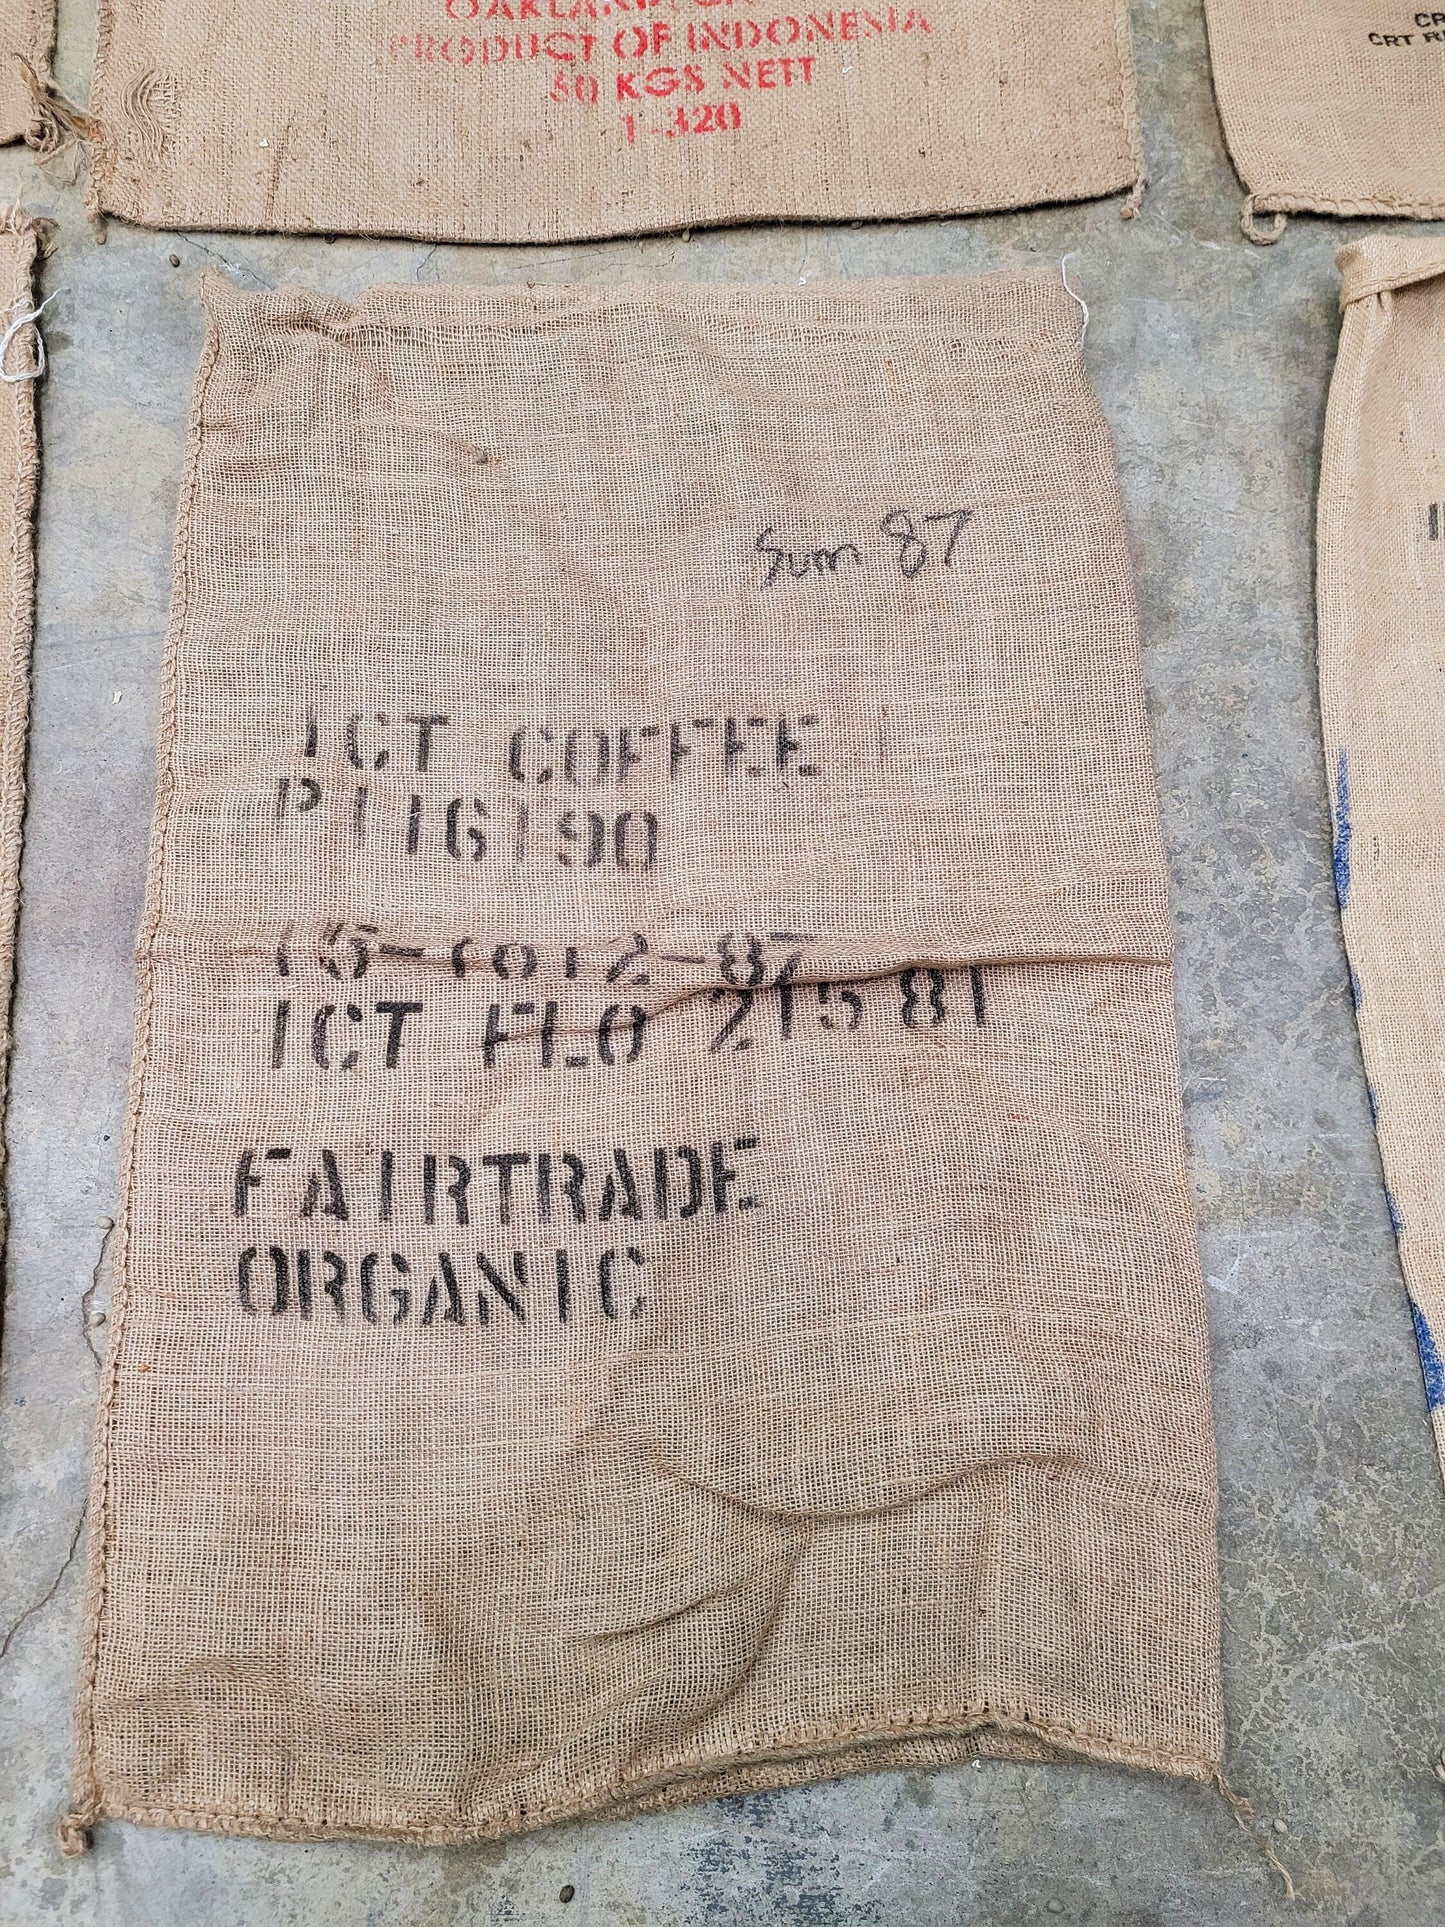 PRODUCT OF INDONESIA
KGS NETT
1-320
CRT
Sum 87
ICT COFFEE
P116190
ICT FLO 215 81
FAIRTRADE
ORGANIC